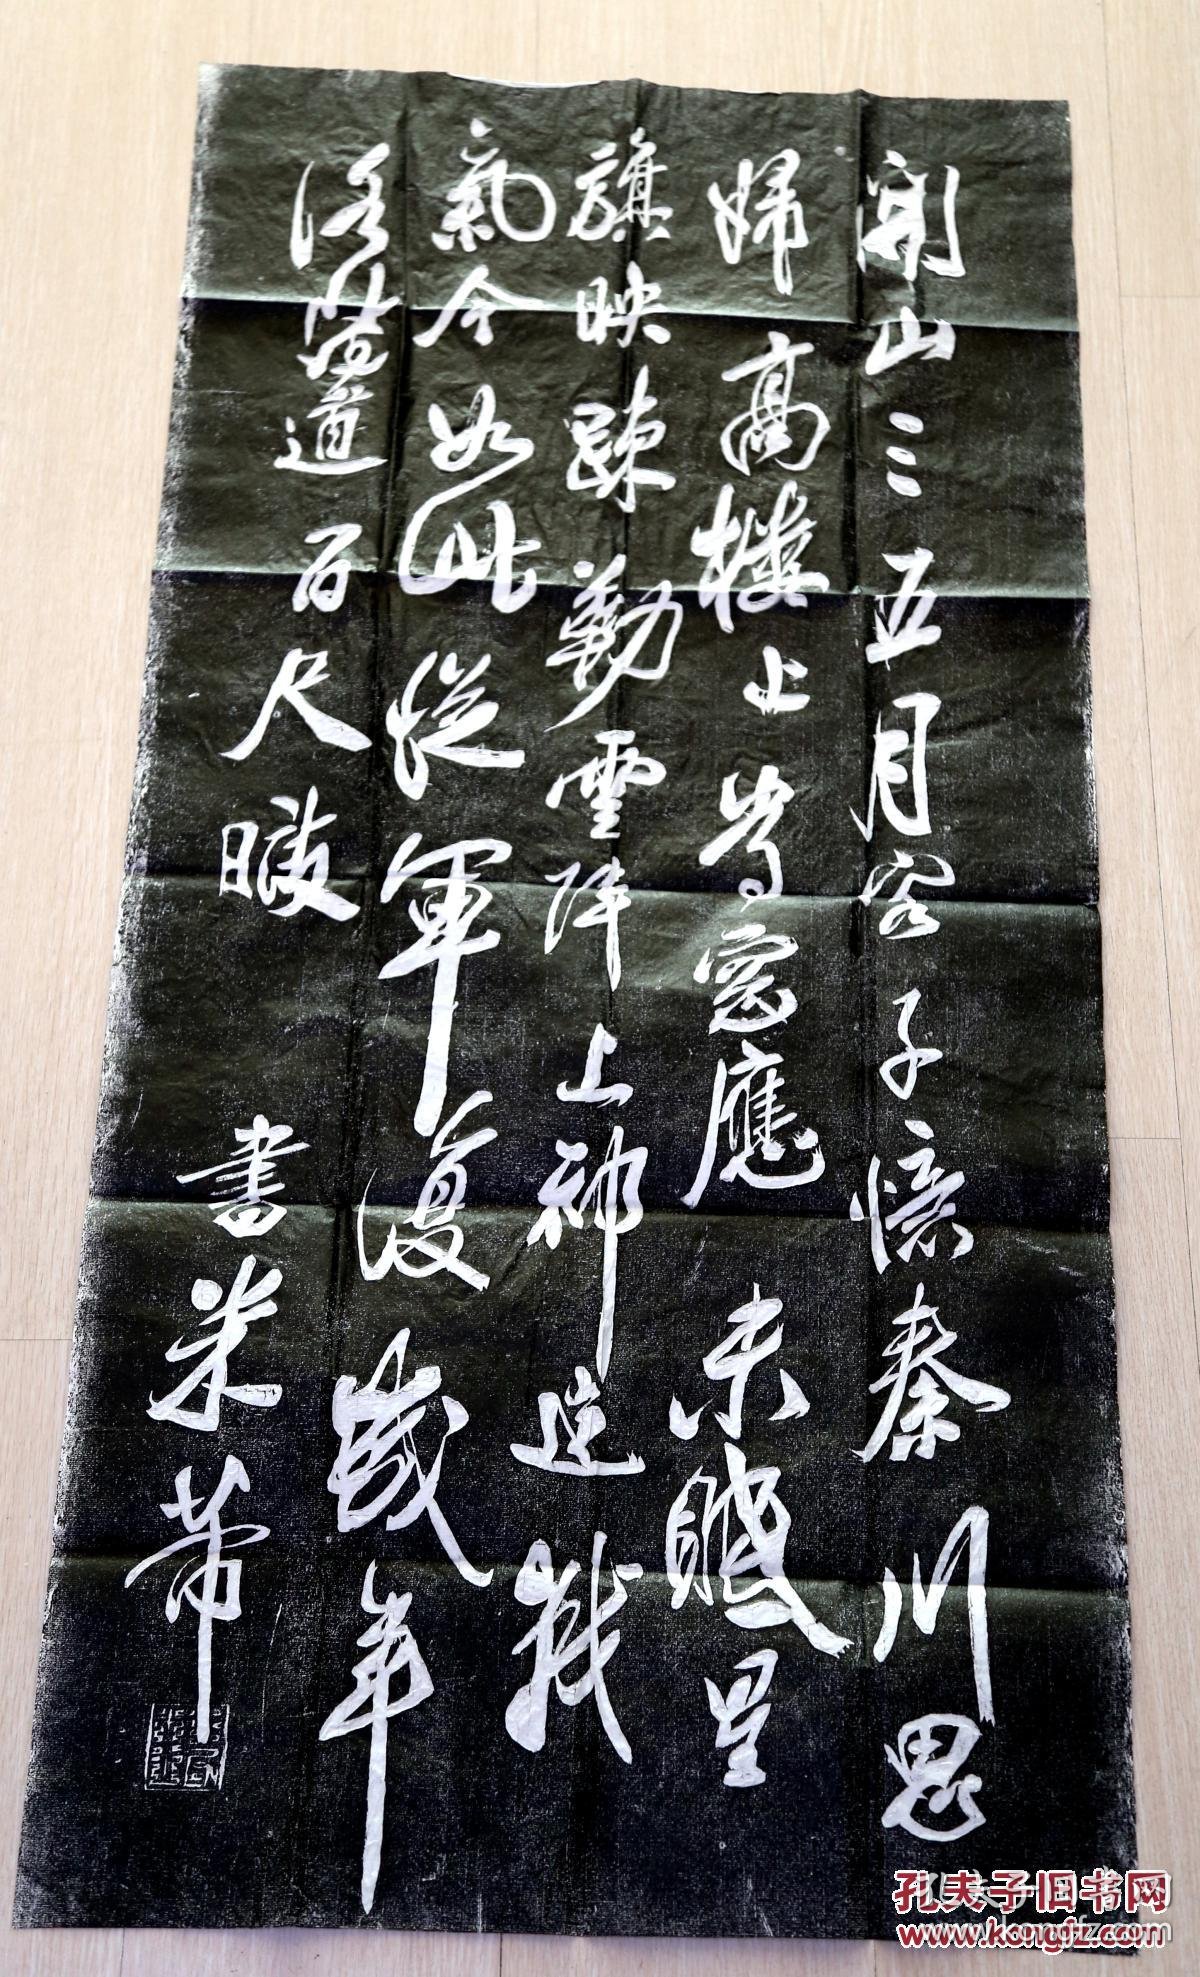 關山三五月客子憶秦川思
婦高樓上當窗應未眠星
旗映疎勒雲陣上祁連戰
氣今如此從軍復幾年
百尺
書米芾
孔夫子旧书网
www.kongfz.com